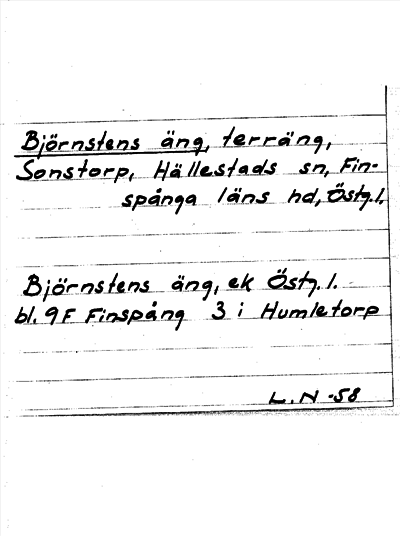 Björnstens äng, terräng,
Sonstorp, Hällestads sn, Fin-
spånga läns hd, Östg. l.
Björnstens äng, ek Östg. l.
bl. 9F Finspång 3 i Humletorp
L. N -58